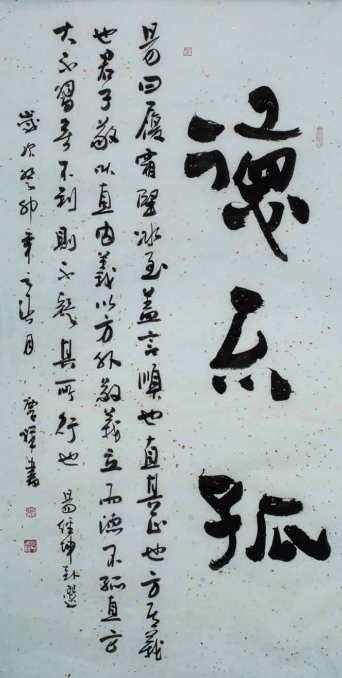 德不孤
易曰履霜堅冰至蓋言順也直其正也方其義
也君子敬以直內義以方外敬義立而德不孤直方
大不習無不利則不疑其所行也 易經坤卦選
歲次癸卯年之月 書